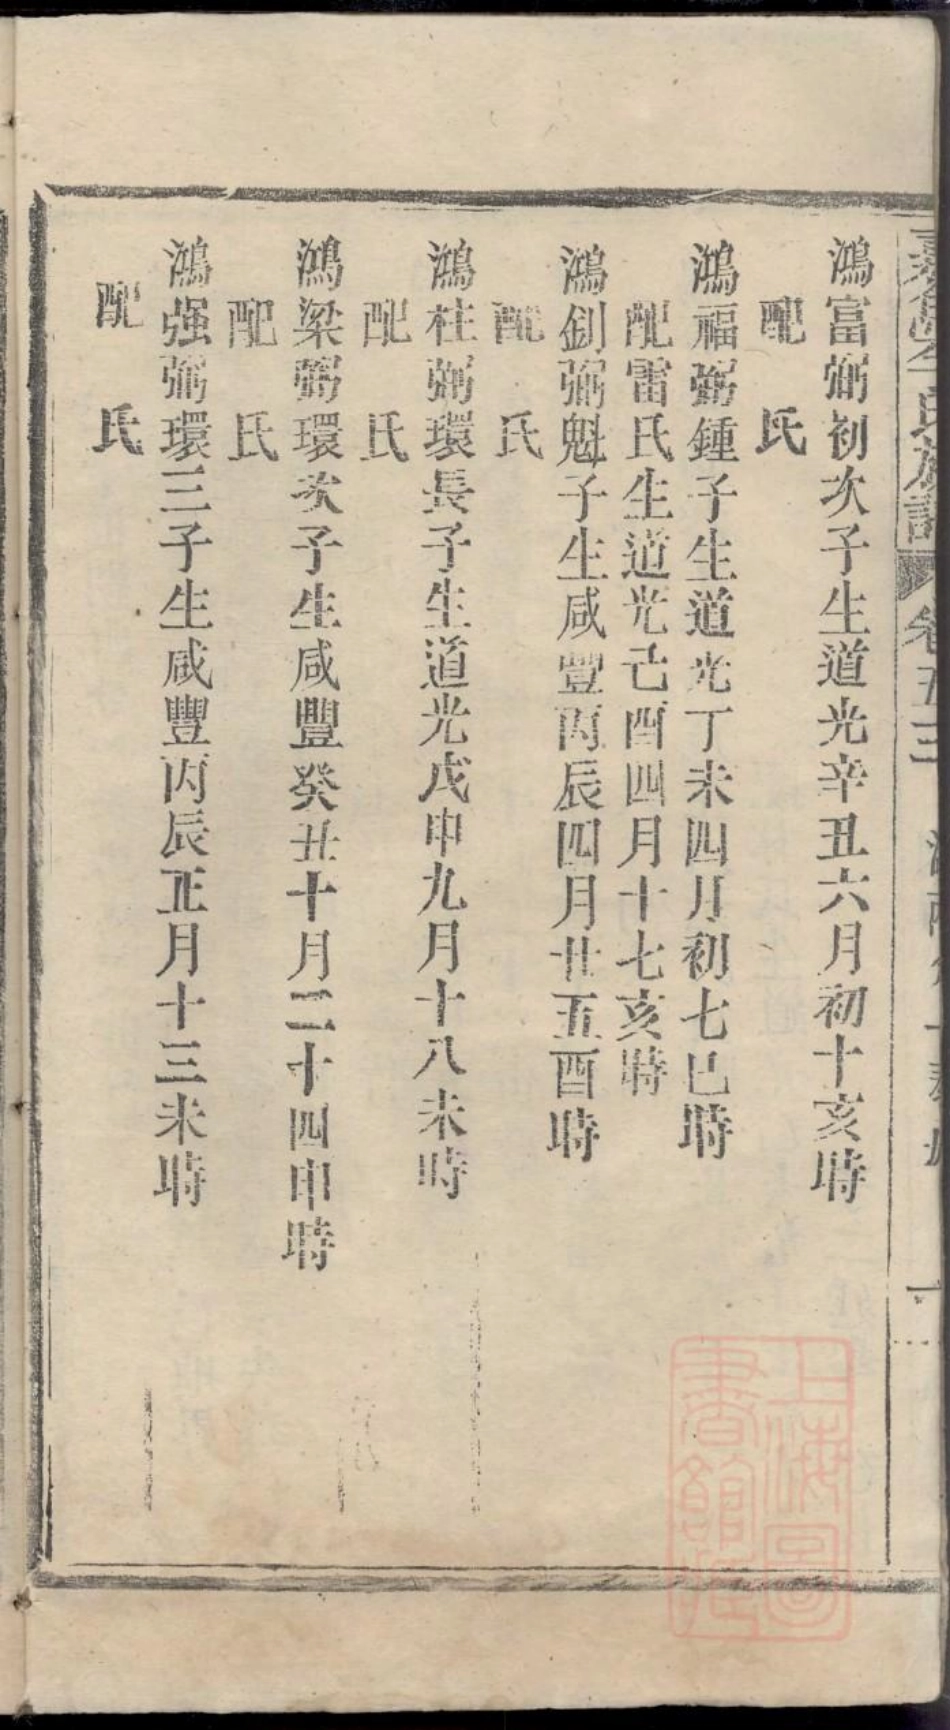 氏族譜 卷五三
鴻富弼初次子生道光辛丑六月初十亥時
配 氏
鴻福弼鍾子生道光丁未四月初七巳時
配雷氏生道光己酉四月十七亥時
鴻釗弼魁子生咸豐丙辰四月廿五酉時
配 氏
鴻柱弼環長子生道光戊申九月十八未時
配 氏
鴻梁弼環次子生咸豐癸丑十月二十四申時
配 氏
鴻强弼環三子生咸豐丙辰正月十三未時
配 氏
上海圖書館藏